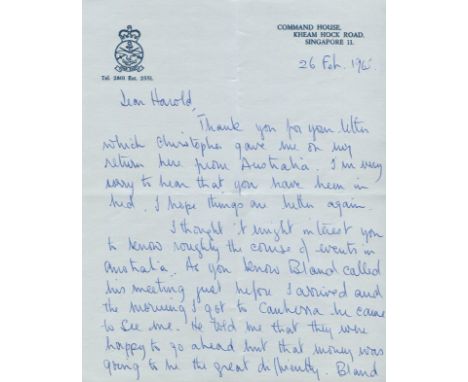 COMMAND HOUSE,
KHEAM HOCK ROAD,
SINGAPORE 11.
Tel. 2801 Ext. 2551.
26 Feb. 196
Dear Harold,
Thank you for your letter
which Christopher gave me on my
return here from Australia. I'm very
sorry to hear that you have been in
bed. I hope things are better again.
I thought it might interest you
to know roughly the course of events in
Australia. As you know Bland called
his meeting just before I arrived and
the morning I got to Canberra he came
to see me. He told me that they were
happy to go ahead but that money was
going to be the great difficulty. Bland